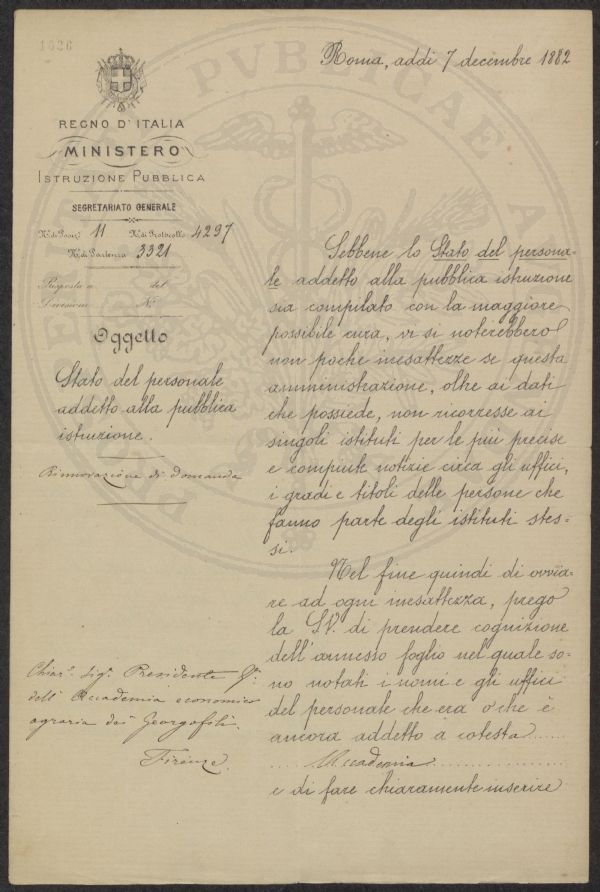 1026
Roma, addì 7 decembre 1882
REGNO D'ITALIA
MINISTERO
ISTRUZIONE PUBBLICA
SEGRETARIATO GENERALE
N.º di Posiz. 11 N.º di Protocollo 4297
N.º di Partenza 3321
Risposta a del
Divisione N.º
Oggetto
Stato del personale
addetto alla pubblica
istruzione.
Rinnovazione di domanda
Sebbene lo Stato del persona=
le addetto alla pubblica istruzione
sia compilato con la maggiore
possibile cura, vi si noterebbero
non poche inesattezze se questa
amministrazione, oltre ai dati
che possiede, non ricorresse ai
singoli istituti per le più precise
e compiute notizie circa gli uffici,
i gradi e titoli delle persone che
fanno parte degli istituti stes=
si.
Nel fine quindi di ovvia=
re ad ogni inesattezza, prego
la S.V. di prendere cognizione
dell'annesso foglio nel quale so=
no notati i nomi e gli uffici
del personale che era o che è
ancora addetto a cotesta
Accademia
e di fare chiaramente inserire
Chiar.º Sig.r Presidente
dell'Accademia economico
agraria dei Georgofili.
Firenze.
PVBLICAE